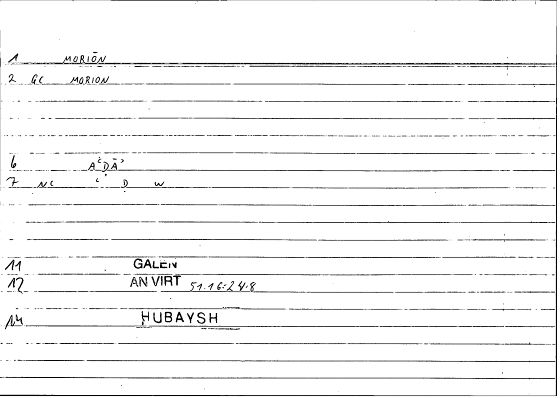 1 MORIŌN
2 GC MORION
6 AʿDĀʾ
7 NC ʿ D W
11 GALEN
12 AN VIRT 51.16-24.8
14 HUBAYSH